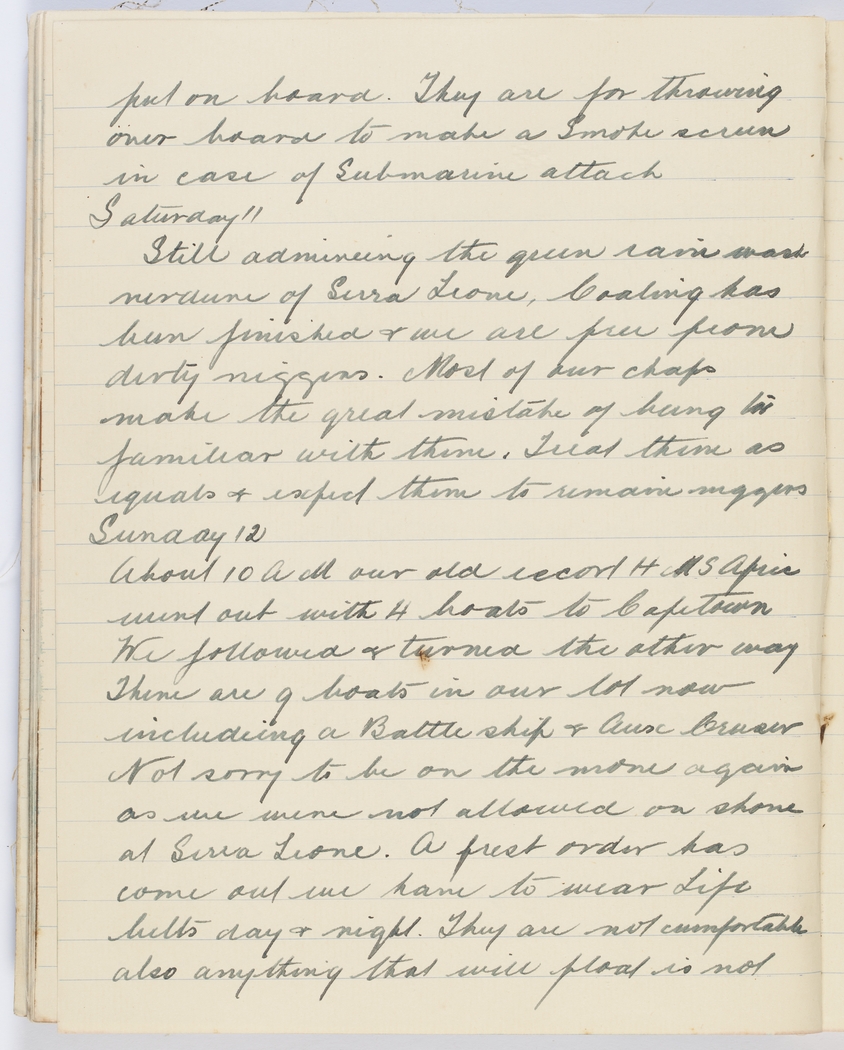 put on board. They are for throwing
over board to make a Smoke screen
in case of Submarine attack
Saturday 11
Still admireing the green rain wash
verdure of Serra Leone, Coaling has
been finished & we are free from
dirty niggers. Most of our chaps
make the great mistake of being to
familiar with them. Treat them as
equals & expect them to remain niggers
Sunday 12
About 10 A M our old escort H M S Afric
went out with 4 boats to Capetown
We followed & turned the other way
There are 9 boats in our lot now
includeing a Battle ship & Aux Cruser
Not sorry to be on the move again
as we were not allowed on shore
at Serra Leone. A fresh order has
come out we have to wear Life
belts day & night. They are not cumfortable
also anything that will float is not